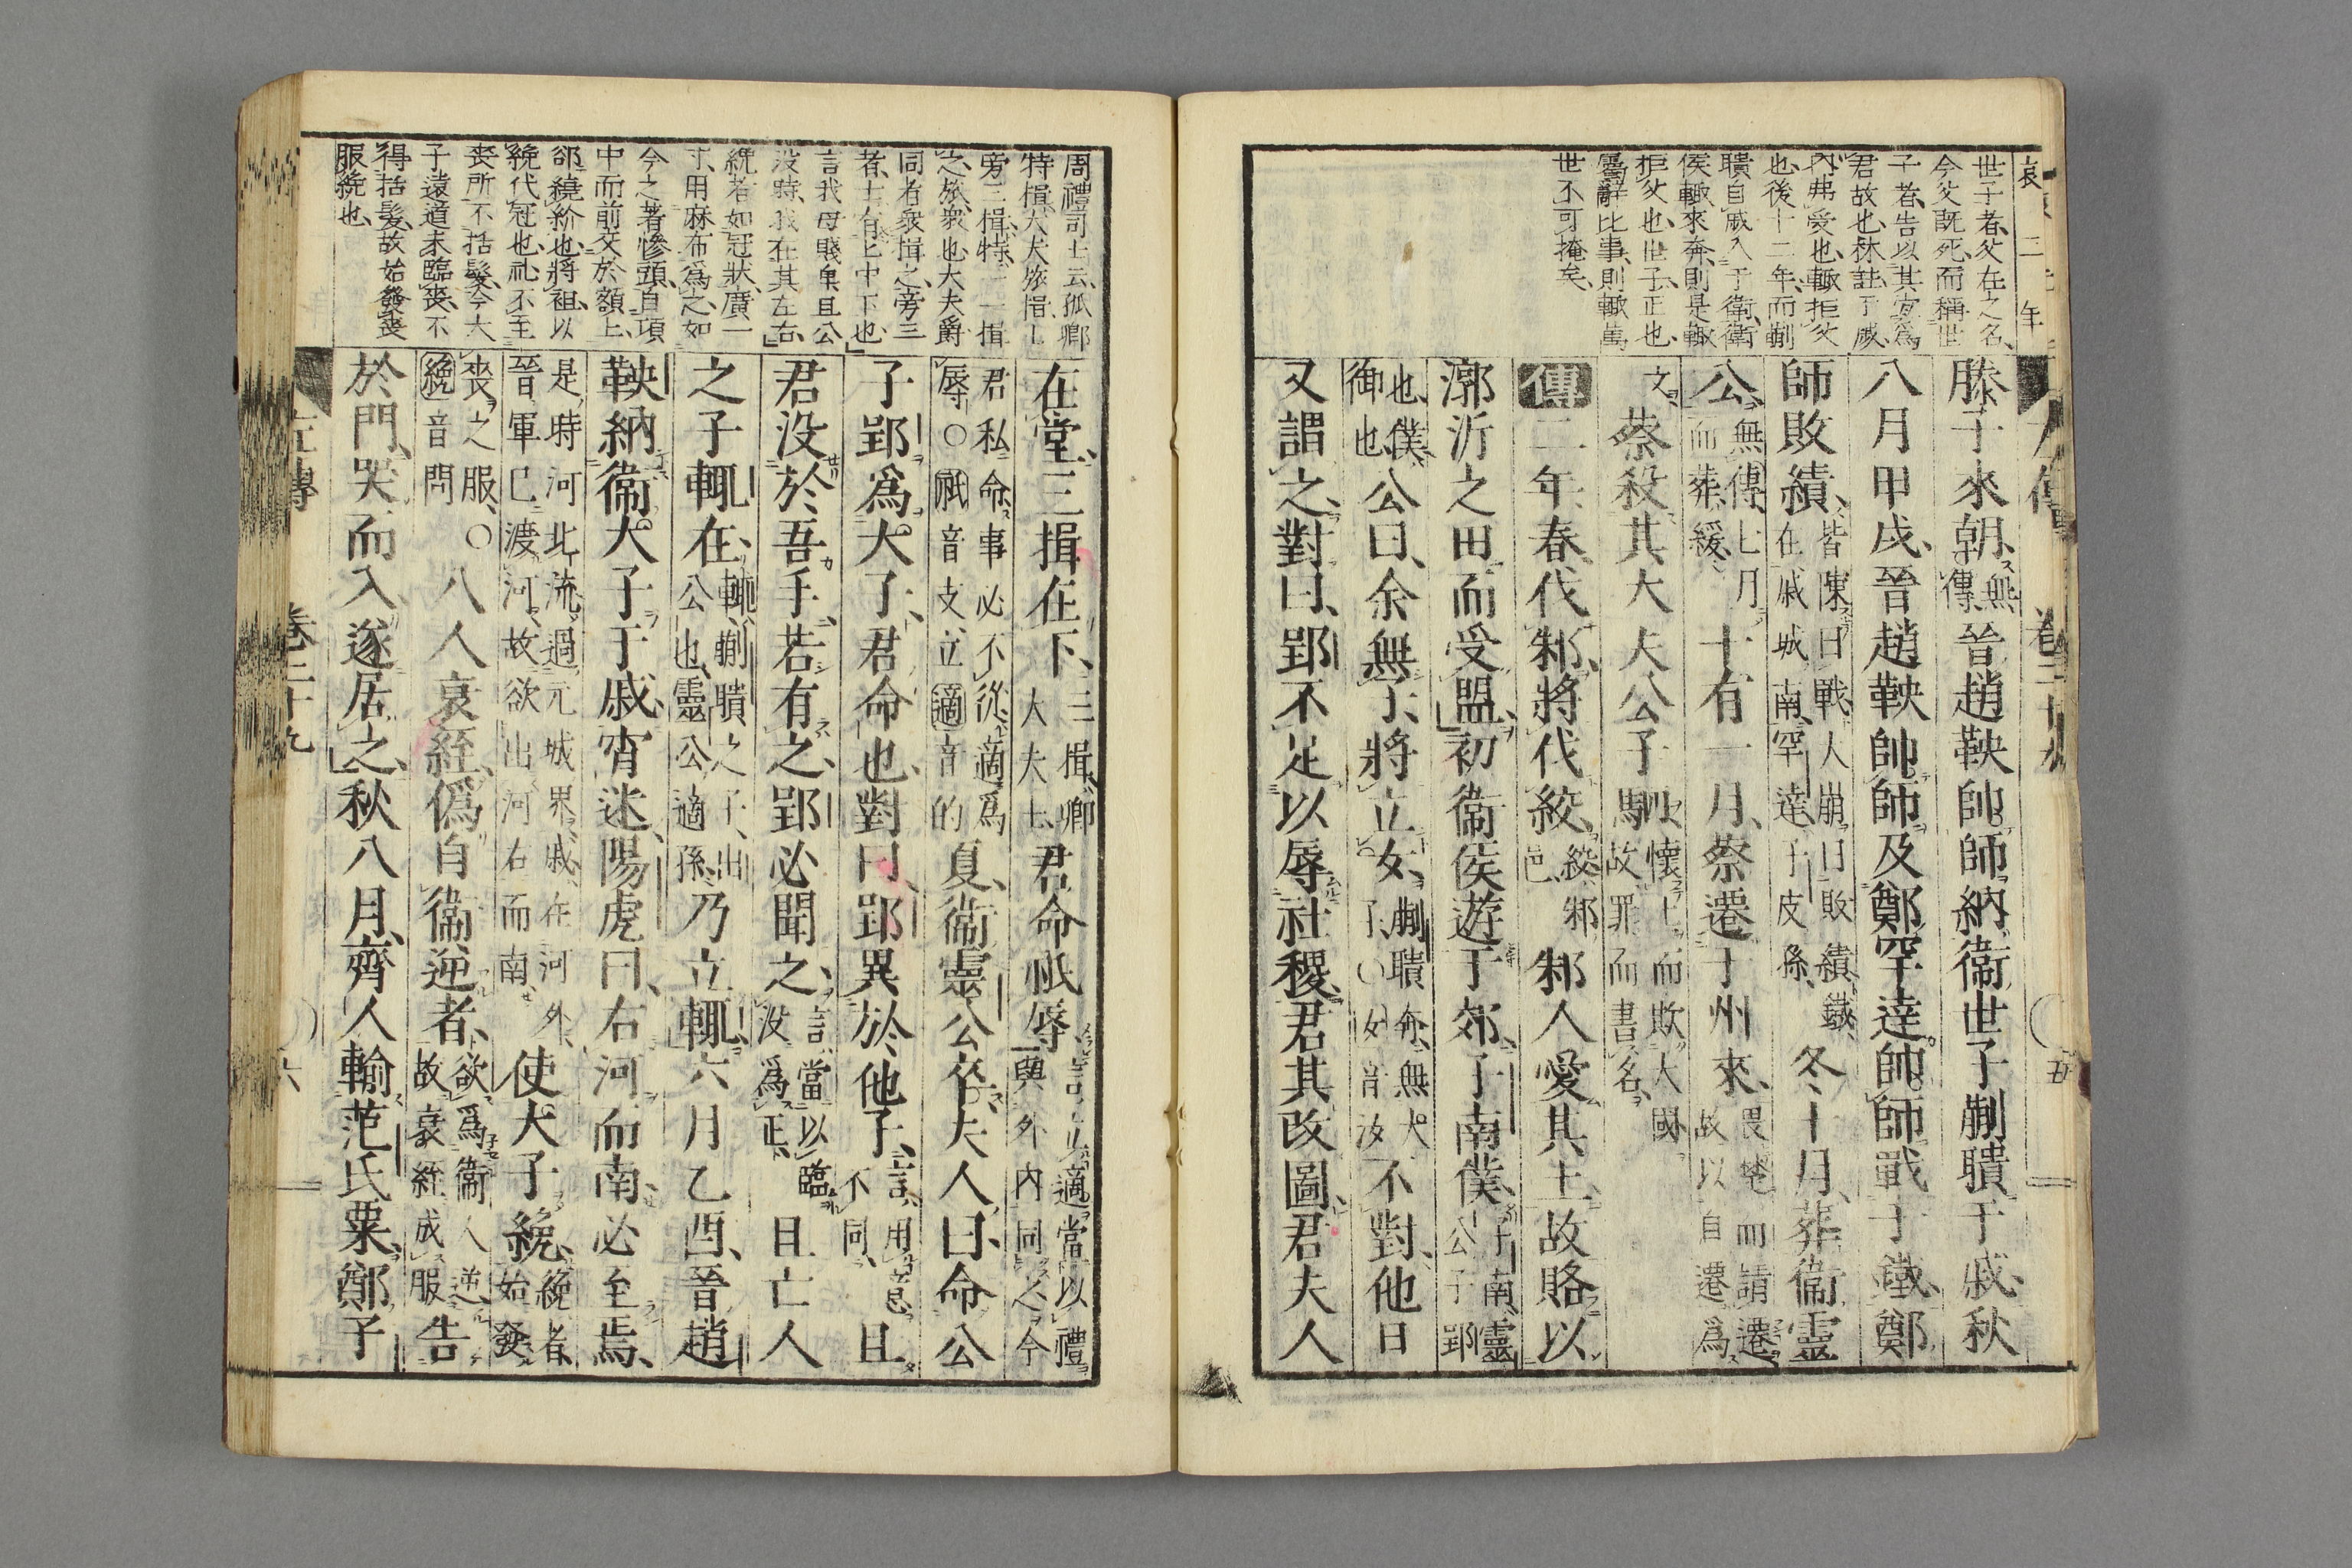 哀 二年
世子者、父在之名、
今父既死、而稱世
子者、告以其宜爲
君故也、林註、于戚、
內弗受也、輙拒父
也、後十二年、而蒯
聵自戚入于衞、衞
侯輙來奔、則是輙
拒父也、世子、正也、
屬辭比事、則輙萬
世不可掩矣、
滕子來朝、無傳晉趙鞅帥師納衞世子蒯聵于戚、秋
八月甲戌、晉趙鞅帥師及鄭罕達帥師戰于鐵、鄭
師敗績、皆陳曰戰、大崩曰敗績、鐵在戚城南、罕達子皮孫、冬十月、葬衞靈
公、無傳、七月而葬、緩、十有一月、蔡遷于州來、畏楚而請遷、故以自遷爲
文、蔡殺其大夫公子駟、懷土而欺大國、故罪而書名、
傳二年春、伐邾、將伐絞、絞、邾邑、邾人愛其土、故賂以
漷沂之田而受盟、初衞侯遊于郊、子南僕、子南、靈公子郢
也、僕、御也、公曰、余無子、將立女、蒯聵奔、無大子、○女音汝不對、他日
又謂之、對曰、郢不足以辱社稷、君其改圖、君夫人
周禮司士云、孤卿
特揖、大夫旅揖、士
旁三揖、特、一一揖
之、旅、衆也、大夫爵
同者衆揖之、旁三
者、士有上中下也、
言我母賤臬且公
没時、我在其左右、
絻者如冠狀、廣一
寸、用麻布爲之、如
今之著幓頭、自項
中而前、交於額上、
郤繞紒也、將祖、以
絻代冠也、礼不至
喪所不括髮、今大
子遠道未臨喪、不
得括髮、故始發喪
服絻也、
在堂、三揖在下、三揖、卿大夫士、君命祇辱、言立適當以禮與外內同之、今
君私命、事必不從、適爲辱、○祇音支、立適音的夏、衞靈公卒、夫人曰、命公
子郢爲大子、君命也、對曰、郢異於他子、言用意不同、且
君没於吾手、若有之、郢必聞之、言當以臨没爲正、且亡人
之子輙在、輙、蒯聵之子、出公也、靈公適孫、乃立輙、六月乙酉、晉趙
鞅納衞大子于戚、宵迷、陽虎曰、右河而南、必至焉、
是時河北流、過元城界、戚在河外、晉軍已渡河、故欲出河右而南、使大子絻、絻者、始發
喪之服、○絻音問八人衰絰、僞自衞逆者、欲爲衞人逆、故衰絰成服告
於門、哭而入、遂居之、秋八月、齊人輸范氏粟、鄭子
左傳 卷二十九 六